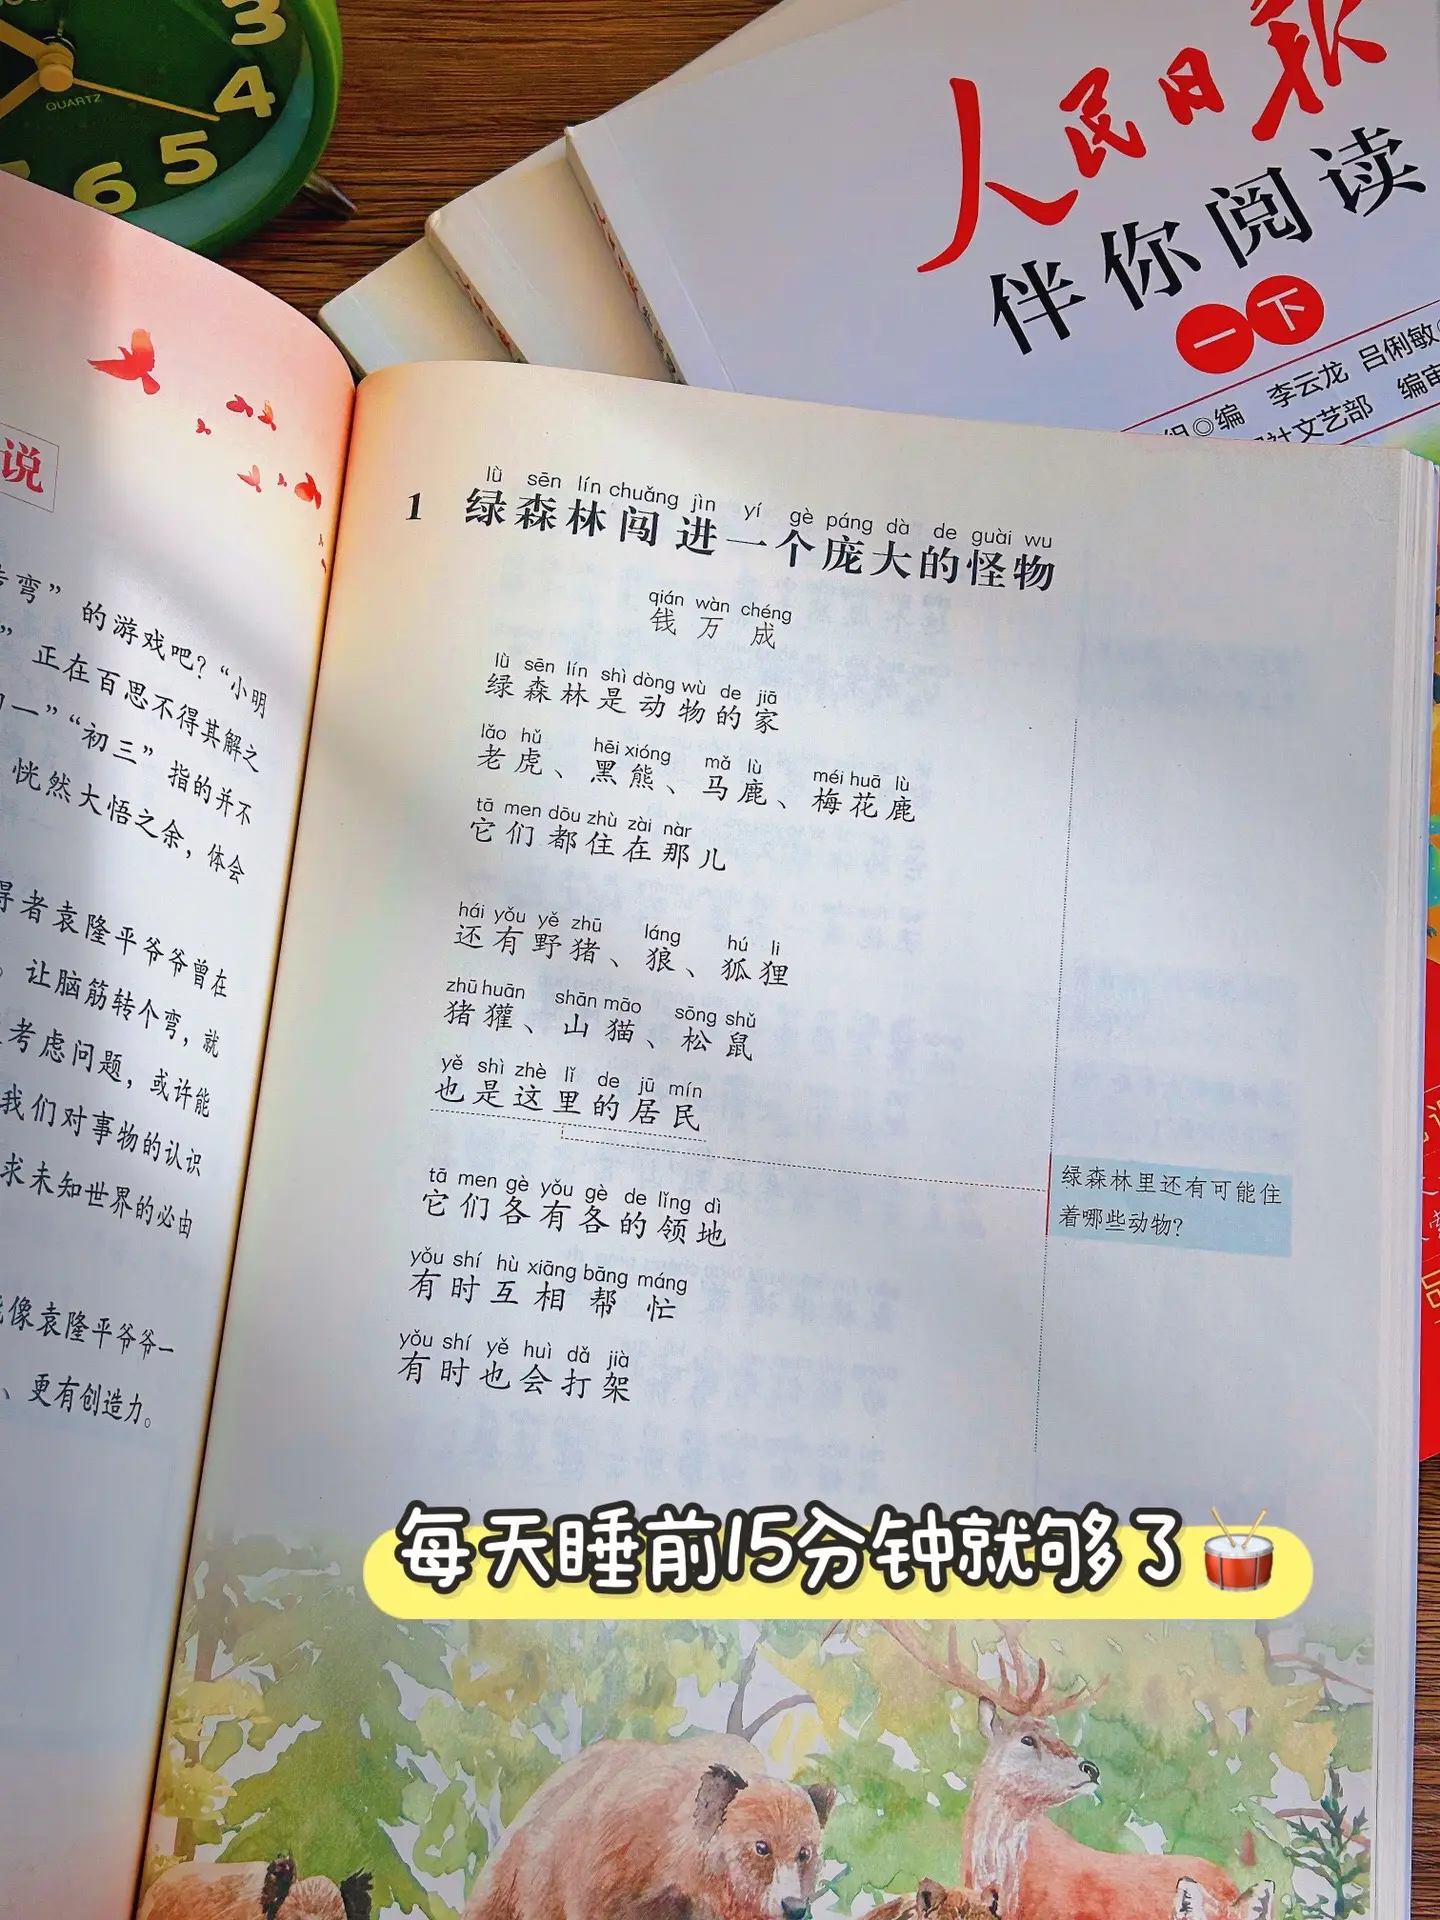 3
4
5
6
QUARTZ
人民日报
伴你阅读
一下
编 李云龙 吕俐敏
社文艺部 编审
说
弯”的游戏吧？“小明
”正在百思不得其解之
一”“初三”指的并不
恍然大悟之余，体会
得者袁隆平爷爷曾在
。让脑筋转个弯，就
考虑问题，或许能
我们对事物的认识
求未知世界的必由
像袁隆平爷爷一
、更有创造力。
lǜ sēn lín chuǎng jìn yí gè páng dà de guài wu
1 绿森林闯进一个庞大的怪物
qián wàn chéng
钱万成
lǜ sēn lín shì dòng wù de jiā
绿森林是动物的家
lǎo hǔ hēi xióng mǎ lù méi huā lù
老虎、黑熊、马鹿、梅花鹿
tā men dōu zhù zài nàr
它们都住在那儿
hái yǒu yě zhū láng hú li
还有野猪、狼、狐狸
zhū huān shān māo sōng shǔ
猪獾、山猫、松鼠
yě shì zhè lǐ de jū mín
也是这里的居民
绿森林里还有可能住
着哪些动物？
tā men gè yǒu gè de lǐng dì
它们各有各的领地
yǒu shí hù xiāng bāng máng
有时互相帮忙
yǒu shí yě huì dǎ jià
有时也会打架
每天睡前15分钟就够了